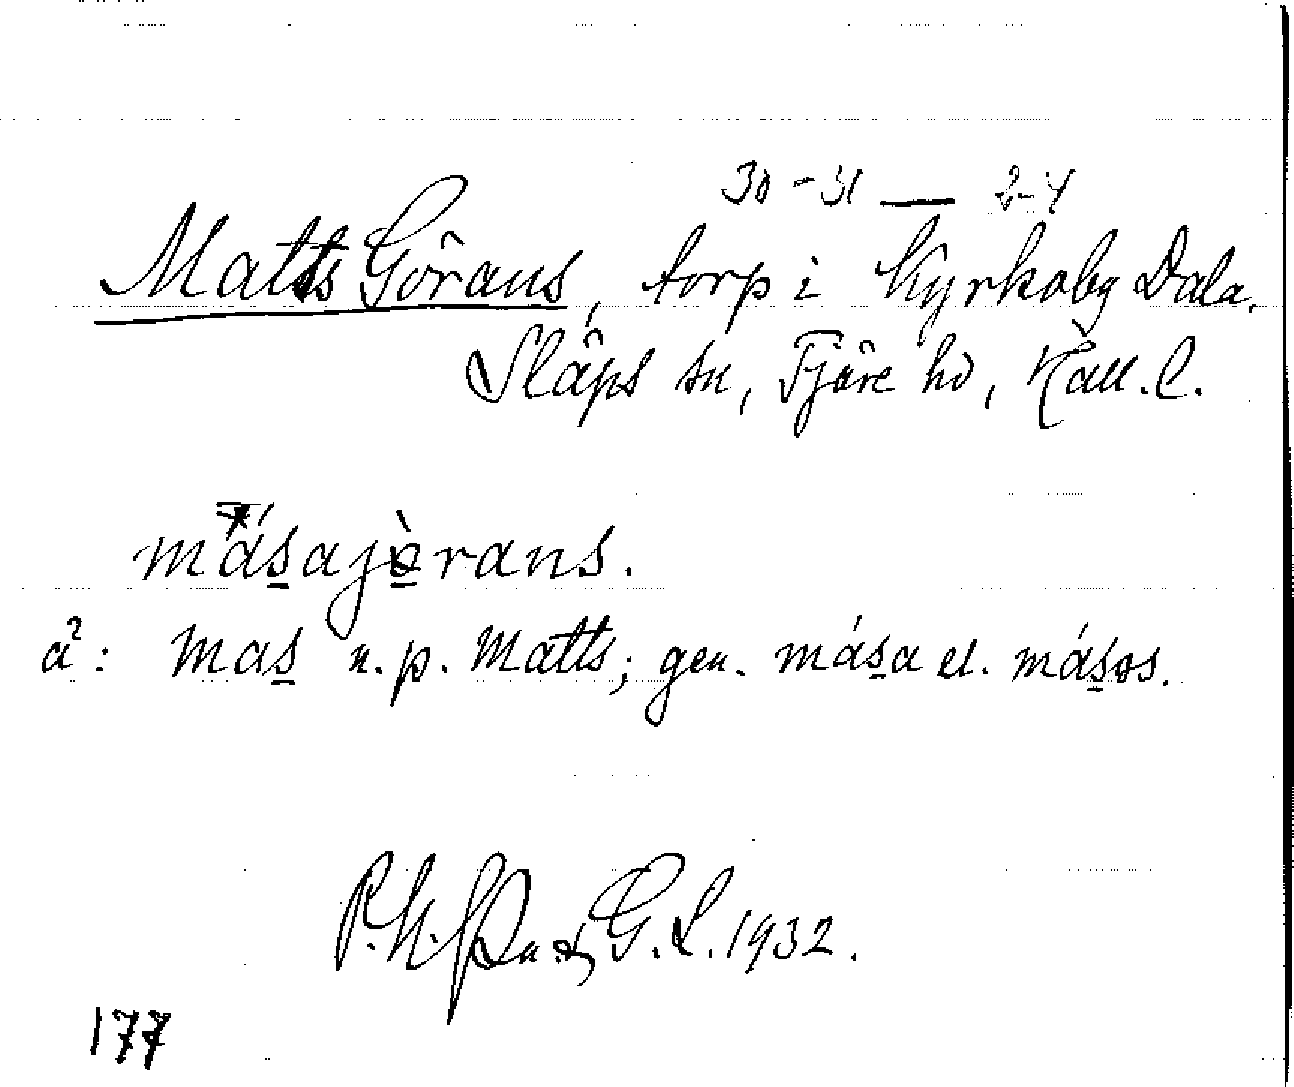 30-31 — 2-4
Matts Görans, torp i Kyrkoby Dala.
Släps sn, Fjäre hd, Hall. l.
másajèrans.
a²: mas n. p. Matts; gen. mása el. másos.
G. L. 1932.
177